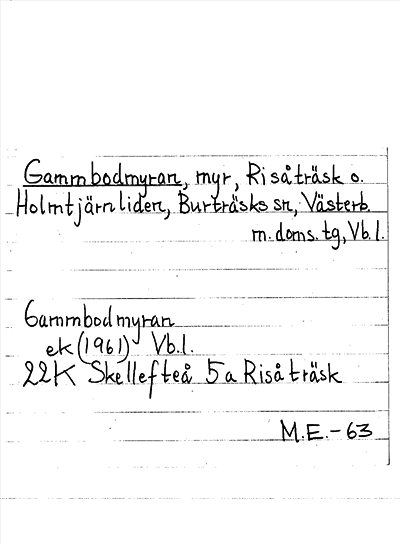 Gammbodmyran, myr, Risåträsk o.
Holmtjärnliden, Burträsks sn, Västerb.
m. doms. tg, Vb. l.
Gammbodmyran
ek (1961) Vb. l.
22K Skellefteå 5a Risåträsk
M.E.-63